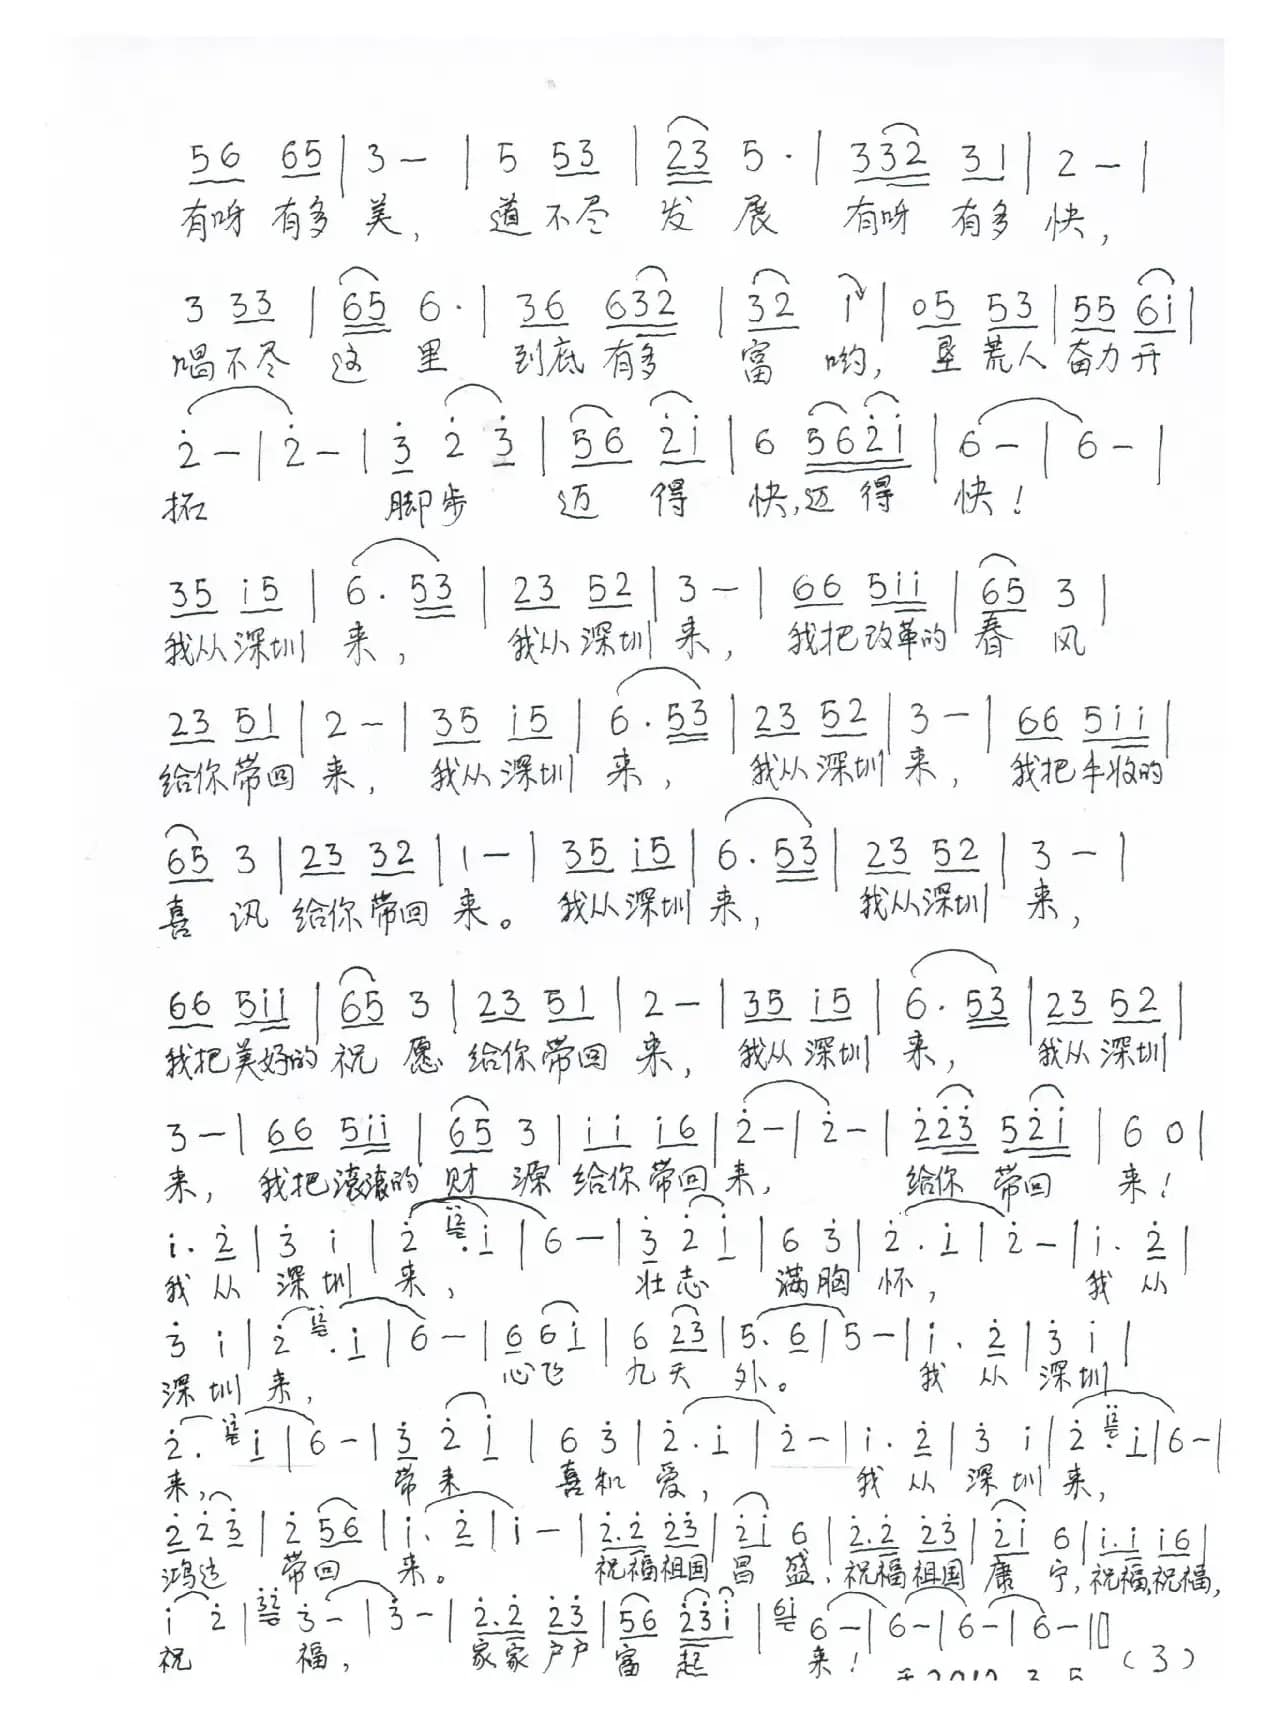 56 65 | 3 — | 5 53 | 23 5· | 332 31 | 2 — |
有呀 有多 美, 道不尽 发 展 有呀 有多 快,
3 33 | 65 6· | 36 632 | 32 i | 05 53 | 55 6i |
唱不尽 这 里 到底 有多 富 哟, 垦荒人 奋力开
2̇ — | 2̇ — | 3̇ 2̇ 3̇ | 56 2̇i | 6 562̇i | 6 — | 6 — |
拓 脚步 迈 得 快,迈 得 快!
35 i5 | 6· 53 | 23 52 | 3 — | 66 5ii | 65 3 |
我从深圳 来, 我从深圳 来, 我把改革的 春 风
23 51 | 2 — | 35 i5 | 6· 53 | 23 52 | 3 — | 66 5ii |
给你带回 来, 我从深圳 来, 我从深圳 来, 我把丰收的
65 3 | 23 32 | 1 — | 35 i5 | 6· 53 | 23 52 | 3 — |
喜 讯 给你带回 来。 我从深圳 来, 我从深圳 来,
66 5ii | 65 3 | 23 51 | 2 — | 35 i5 | 6· 53 | 23 52 |
我把美好的 祝 愿 给你带回 来, 我从深圳 来, 我从深圳
3 — | 66 5ii | 65 3 | ii i6 | 2̇ — | 2̇ — | 2̇2̇3̇ 52̇i | 6 0 |
来, 我把滚滚的 财 源 给你带回 来, 给你 带回 来!
i· 2̇ | 3̇ i | 2̇· i | 6 — | 3̇ 2̇ i | 6 3̇ | 2̇· i | 2̇ — | i· 2̇ |
我 从 深 圳 来, 壮志 满胸 怀, 我 从
3̇ i | 2̇· i | 6 — | 6 6i | 6 2̇3̇ | 5· 6 | 5 — | i· 2̇ | 3̇ i |
深圳 来, 心飞 九天 外。 我 从 深圳
2̇· i | 6 — | 3̇ 2̇ i | 6 3̇ | 2̇· i | 2̇ — | i· 2̇ | 3̇ i | 2̇· i | 6 — |
来, 带来 喜和 爱, 我 从 深圳 来,
2̇ 2̇ 3̇ | 2̇ 56 | i· 2̇ | i — | 2̇·2̇ 2̇3̇ | 2̇i 6 | 2̇·2̇ 2̇3̇ | 2̇i 6 | i·i i6 |
鸿运 带回 来。 祝福祖国 昌 盛, 祝福祖国 康 宁, 祝福,祝福,
i 2̇ | 3̇2̇ 3̇ — | 3̇ — | 2̇·2̇ 2̇3̇ | 56 2̇3̇i | 6i 6 — | 6 — | 6 — | 6 — ‖
祝 福, 家家户户 富 起 来! (3)